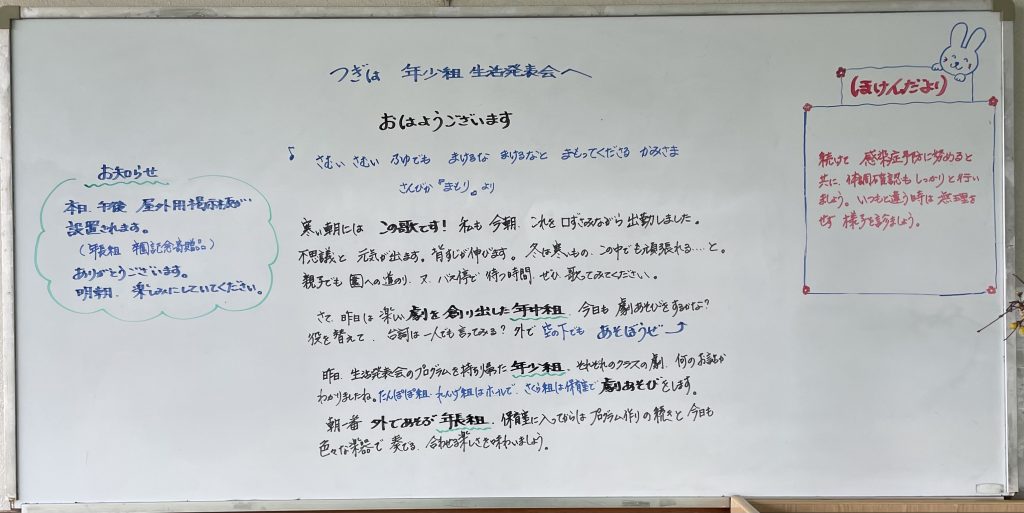 つぎは 年少組 生活発表会へ
おはようございます
♪ さむい さむい ふゆでも まけるな まけるなと まもってくださる かみさま
さんびか『まもり』より
寒い朝には この歌です! 私も今朝、これを口ずさみながら出勤しました。
不思議と 元気が出ます。背すじが伸びます。冬は寒いもの、この中でも頑張れる…と。
親子でも 園への道のり、又、バス停で 待つ時間、ぜひ 歌ってみてください。
さて、昨日は 楽しい 劇を創り出した 年中組、今日も 劇あそびをするかな?
役を替えて、台詞は一人でも言ってみる? 外で 空の下でも あそぼうぜ
昨日、生活発表会のプログラムを持ち帰った 年少組、それぞれのクラスの劇、何のお話か
わかりましたね。たんぽぽ組・れんげ組はホールで、さくら組は保育室で 劇あそびをします。
朝一番 外であそぶ 年長組、保育室に入ってからは プログラム作りの続きと 今日も
色々な楽器で 奏でる、合わせる楽しさを味わいましょう。
お知らせ
本日、午後 屋外用掲示板が…
設置されます。
(年長組 卒園記念寄贈品)
ありがとうございます。
明朝、楽しみにしていてください。
ほけんだより
続けて 感染症予防に努めると
共に、体調確認も しっかりと行い
ましょう。いつもと違う時は 無理を
せず 様子を診ましょう。